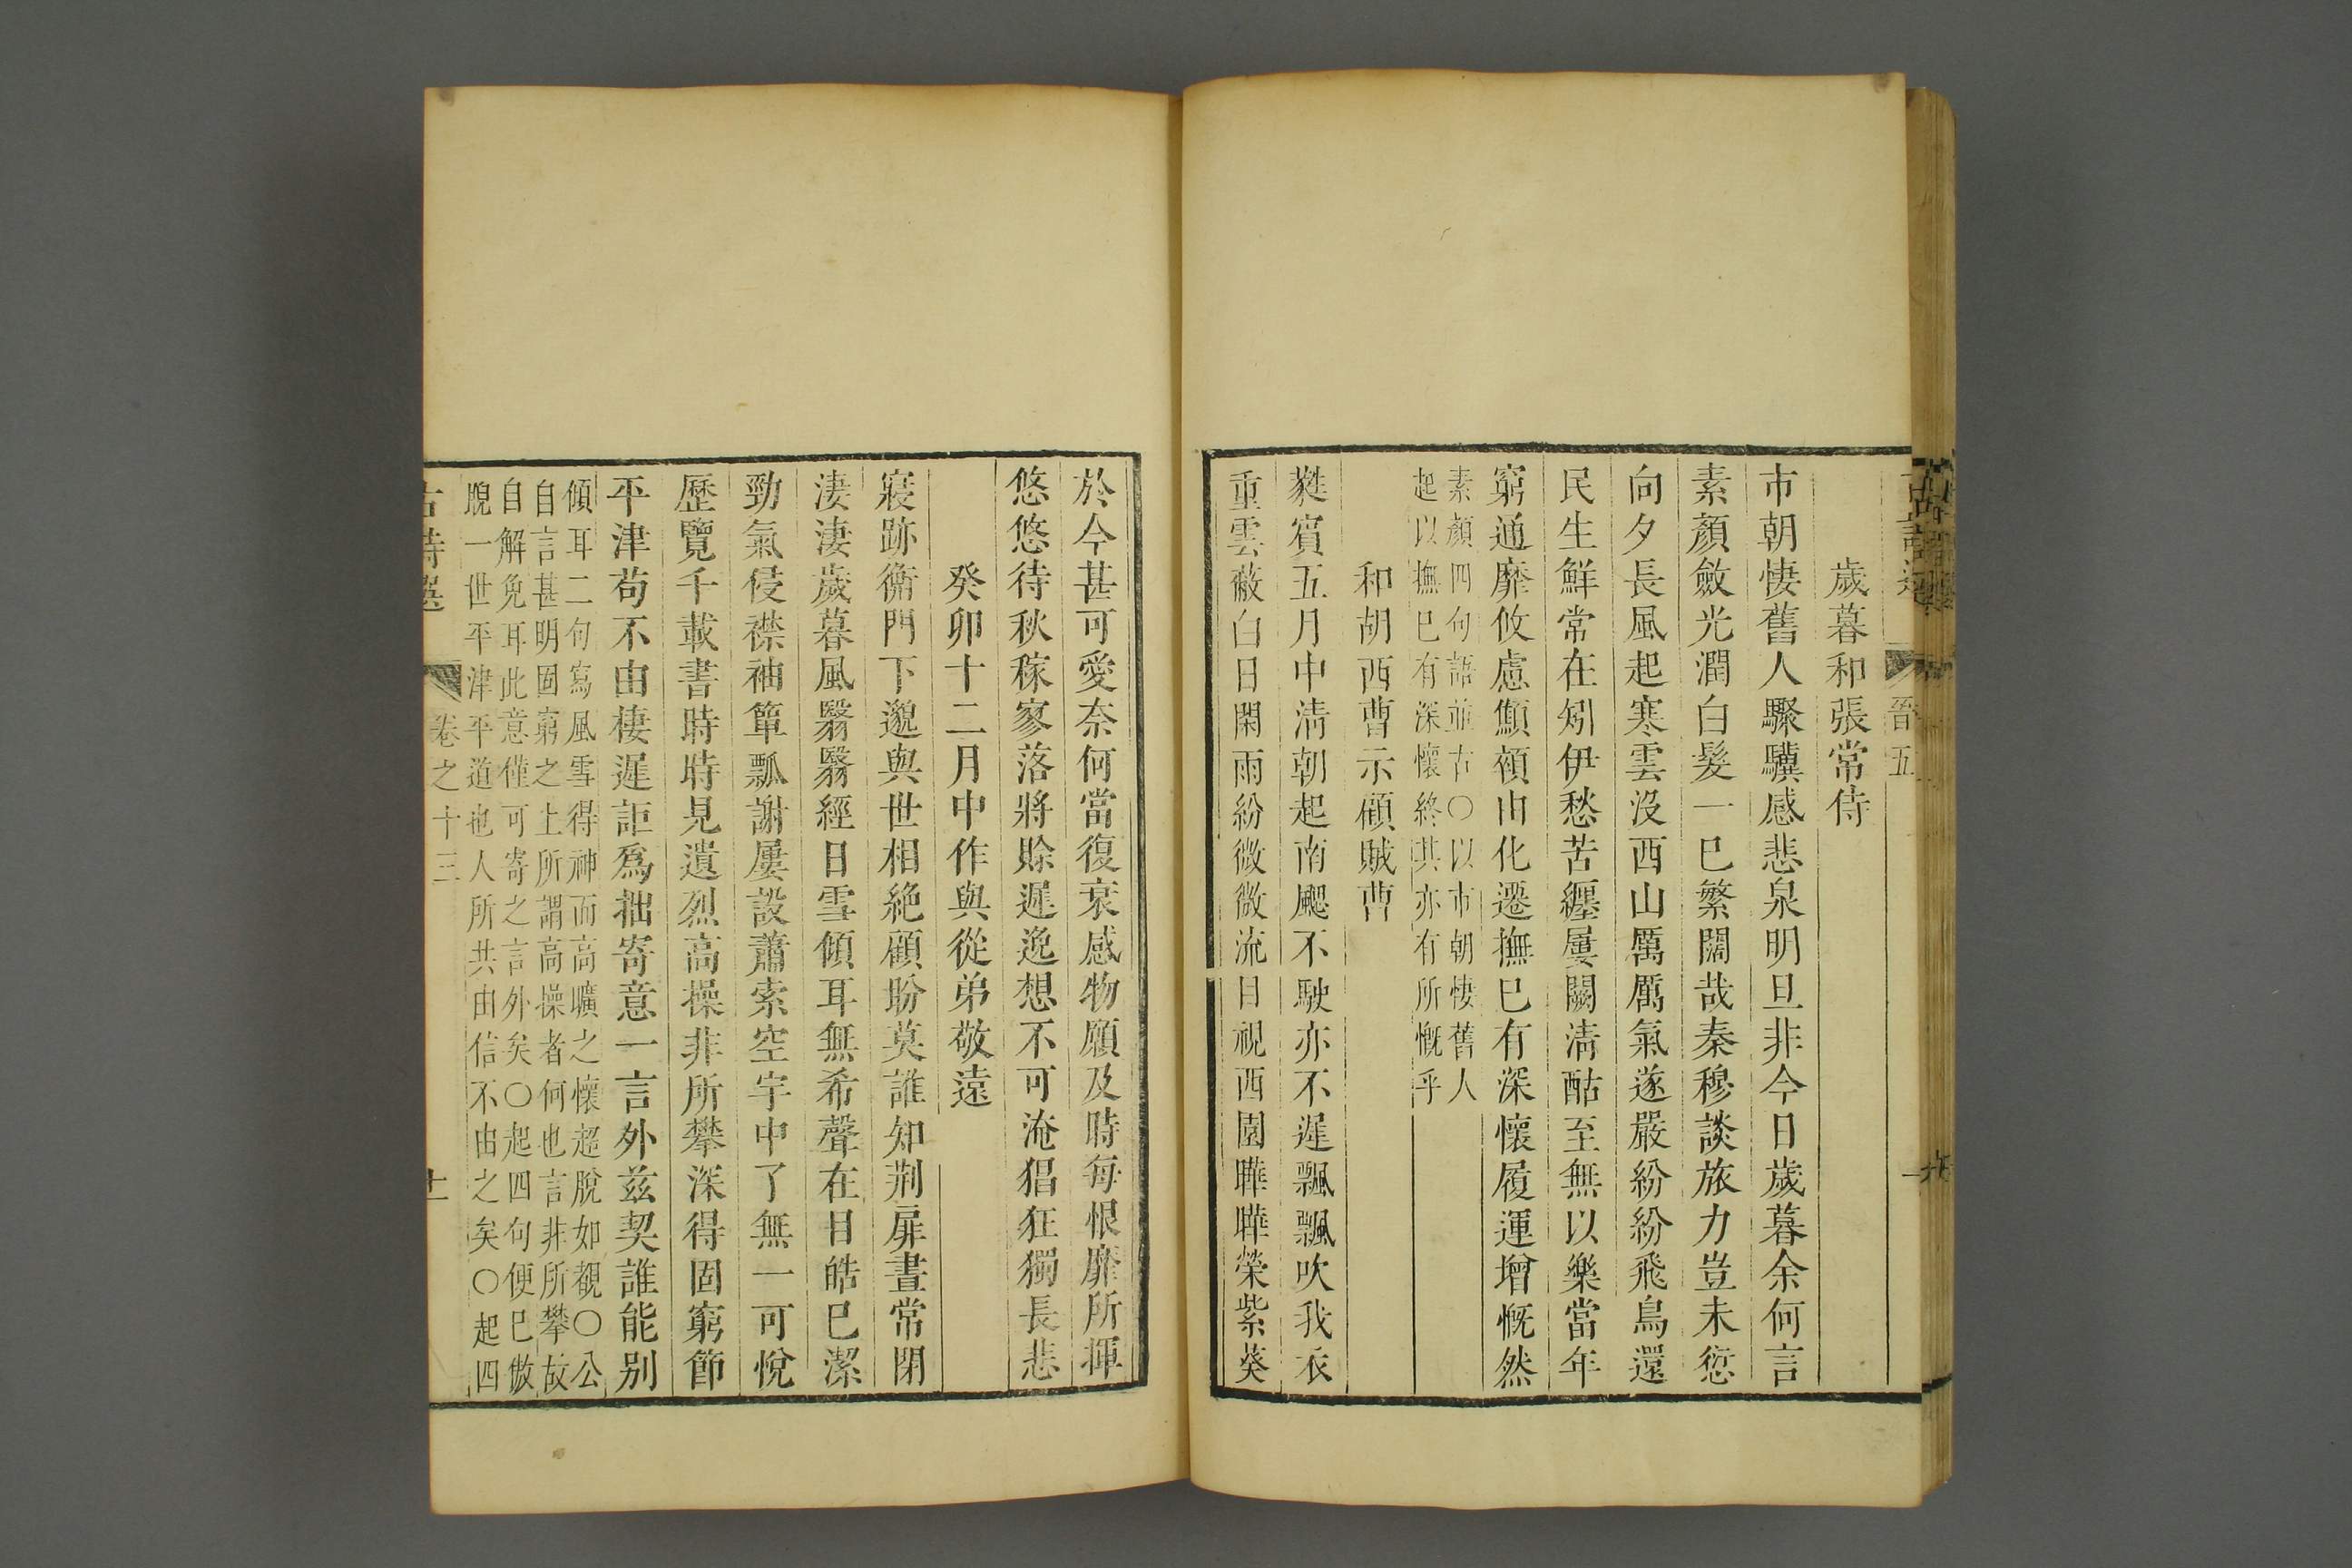 晉五
歲暮和張常侍
市朝悽舊人驟驥感悲泉明旦非今日歲暮余何言
素顏斂光潤白髮一已繁闊哉秦穆談旅力豈未愆
向夕長風起寒雲沒西山厲厲氣遂嚴紛紛飛鳥還
民生鮮常在矧伊愁苦纏屢闕清酤至無以樂當年
窮通靡攸慮顦顇由化遷撫已有深懷履運增慨然
素顏四句語並古〇以市朝悽舊人
起以撫已有深懷終其亦有所慨乎
和胡西曹示顧賊曹
蕤賓五月中清朝起南颸不駛亦不遲飄飄吹我衣
重雲蔽白日閑雨紛微微流目視西園曄曄榮紫葵
於今甚可愛奈何當復衰感物願及時每恨靡所揮
悠悠待秋稼寥落將賖遲逸想不可淹猖狂獨長悲
癸卯十二月中作與從弟敬遠
寢跡衡門下邈與世相絶顧盼莫誰知荆扉晝常閉
淒淒歲暮風翳翳經日雪傾耳無希聲在目皓已潔
勁氣侵襟袖簞瓢謝屢設蕭索空宇中了無一可悅
歷覽千載書時時見遺烈高操非所攀深得固窮節
平津苟不由棲遲詎爲拙寄意一言外茲契誰能别
傾耳二句寫風雪得神而高曠之懷超脫如覩〇公
自言甚明固窮之上所謂高操者何也言非所攀故
自解免耳此意僅可寄之言外矣〇起四句便已傲
睨一世平津平道也人所共由信不由之矣〇起四
古詩選 卷之十三 十一